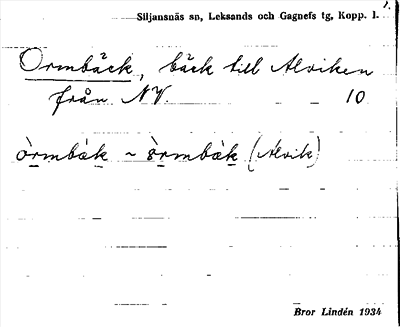 1.
Siljansnäs sn, Leksands och Gagnefs tg, Kopp. l.
Ormbäck, bäck till Alviken
från NV. 10
òrmbàk ~ òrmbàk (Alvik)
Bror Lindén 1934